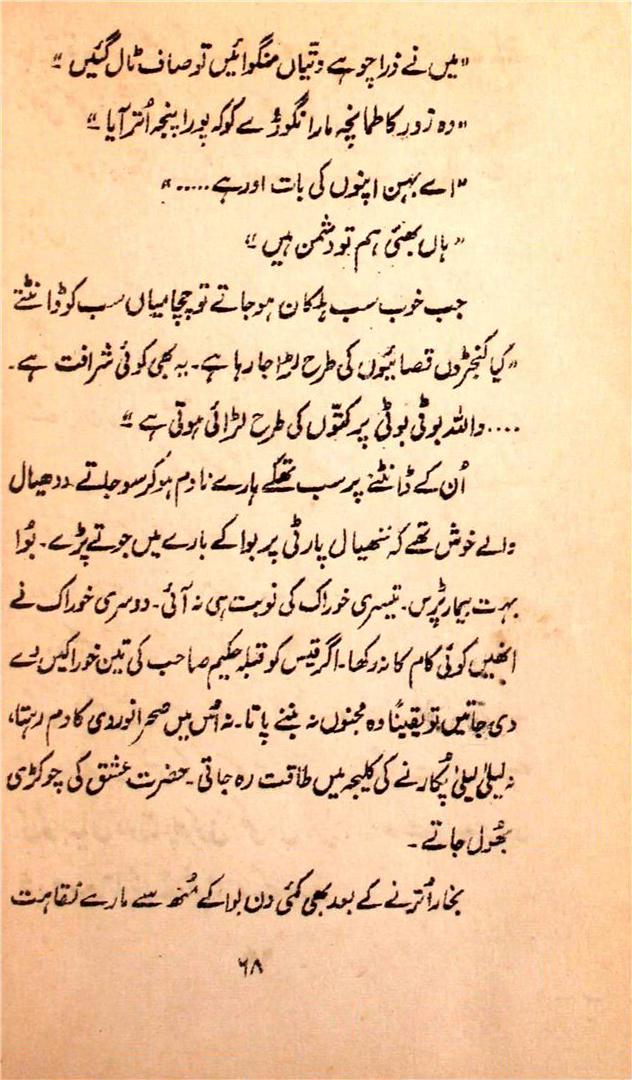 "میں نے ذرا چوہے دتّیاں منگوائیں تو صاف ٹال گئیں۔"
"وہ زور کا طمانچہ مارا نگوڑے کو کہ پورا پنجہ اُتر آیا۔"
"اے بہن اپنوں کی بات اور ہے....."
"ہاں بھئی ہم تو دشمن ہیں۔"
جب خوب سب ہلکان ہو جاتے تو چچا میاں سب کو ڈانٹتے
"کیا کنجڑوں قصائیوں کی طرح لڑا جا رہا ہے۔ یہ بھی کوئی شرافت ہے۔
.... واللہ بوٹی بوٹی پر کتّوں کی طرح لڑائی ہوتی ہے۔"
اُن کے ڈانٹنے پر سب تھکے ہارے نادم ہو کر سو جلتے۔ ددھیال
والے خوش تھے کہ ننھیال پارٹی پر بوا کے بارے میں جوتے پڑے۔ بُوا
بہت بیمار پڑیں۔ تیسری خوراک کی نوبت ہی نہ آئی۔ دوسری خوراک نے
انھیں کوئی کام کا نہ رکھا۔ اگر قیس کو قبلہ حکیم صاحب کی تین خوراکیں دے
دی جاتیں تو یقیناً وہ مجنوں نہ بننے پاتا۔ نہ اُس میں صحرا نوردی کا دم رہتا،
نہ لیلیٰ لیلیٰ پُکارنے کی کلیجہ میں طاقت رہ جاتی۔ حضرت عشق کی چوکڑی
بھُول جاتے۔
بخار اُترنے کے بعد بھی کئی دن بوا کے مُنھ سے مارے نقاہت
۶۸